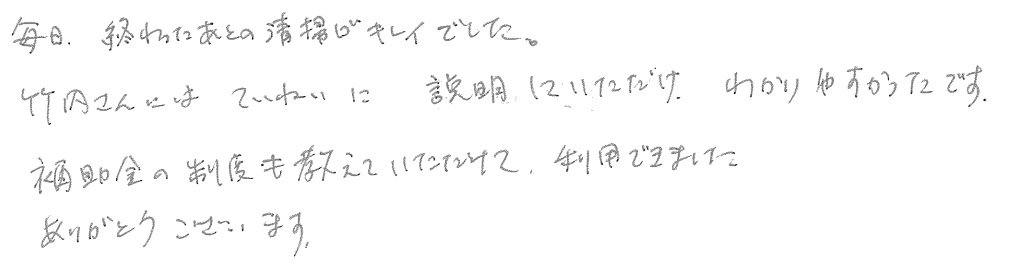 毎日、終わったあとの清掃がキレイでした。
竹内さんには ていねいに 説明していただけ、わかりやすかったです。
補助金の制度も教えていただけて、利用できました
ありがとうございます。